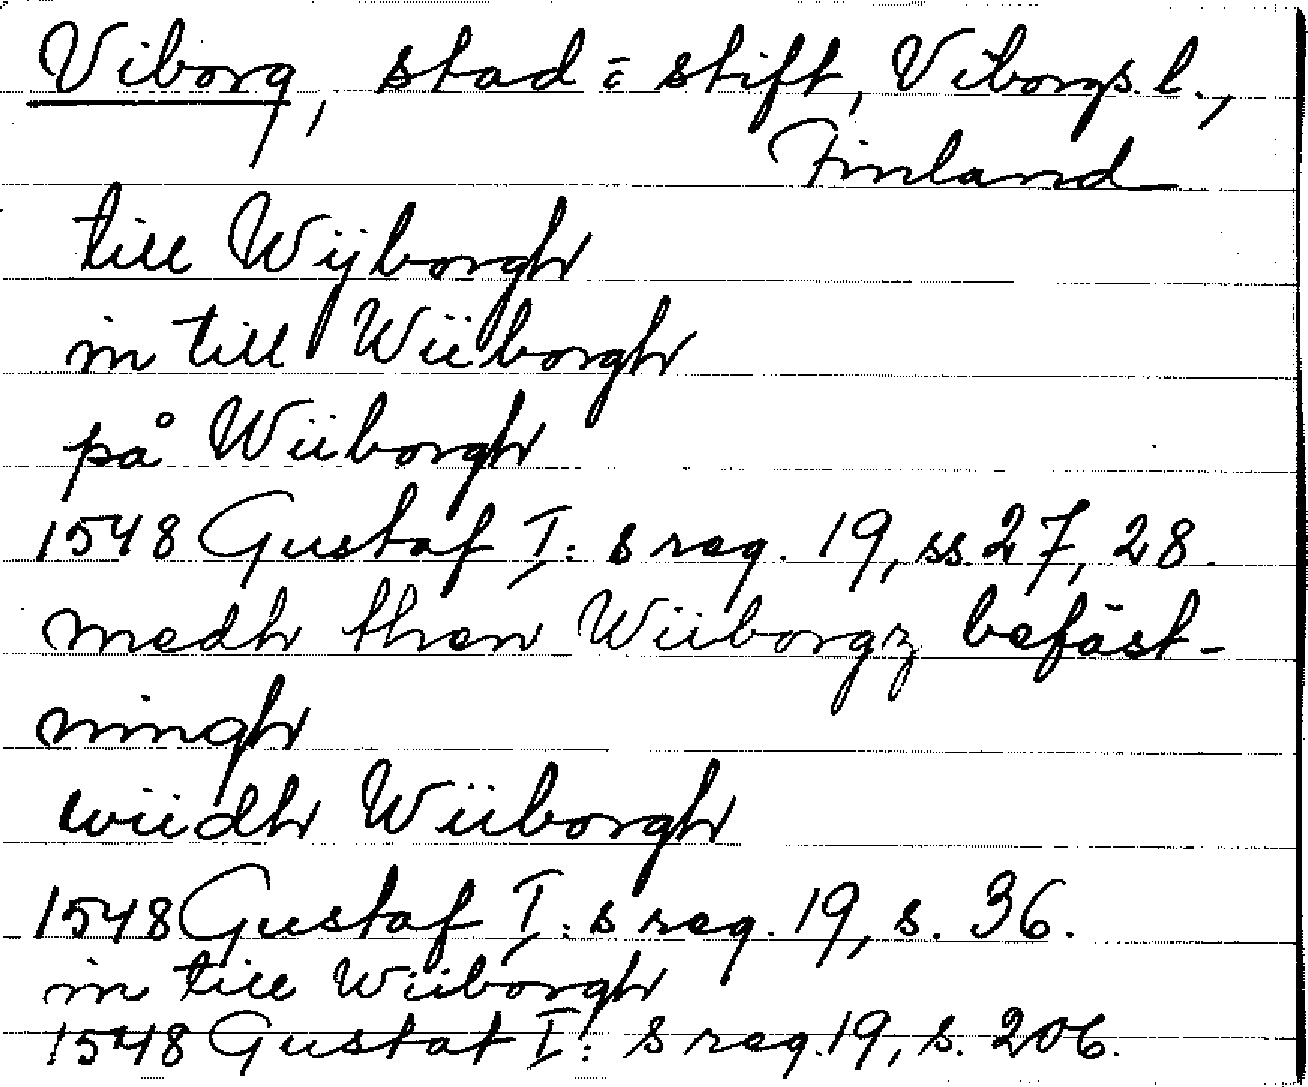 Viborg, stad o stift, Viborgs. l.,
Finland
till Wijborgh
in till Wiiborgh
på Wiiborgh
1548 Gustaf I: s reg. 19, ss 27, 28.
medh then Wiiborgz befäst-
ningh
wiidh Wiiborgh
1548 Gustaf I: s reg. 19, s. 36.
in till Wiiborgh
1548 Gustaf I: s reg. 19, s. 206.